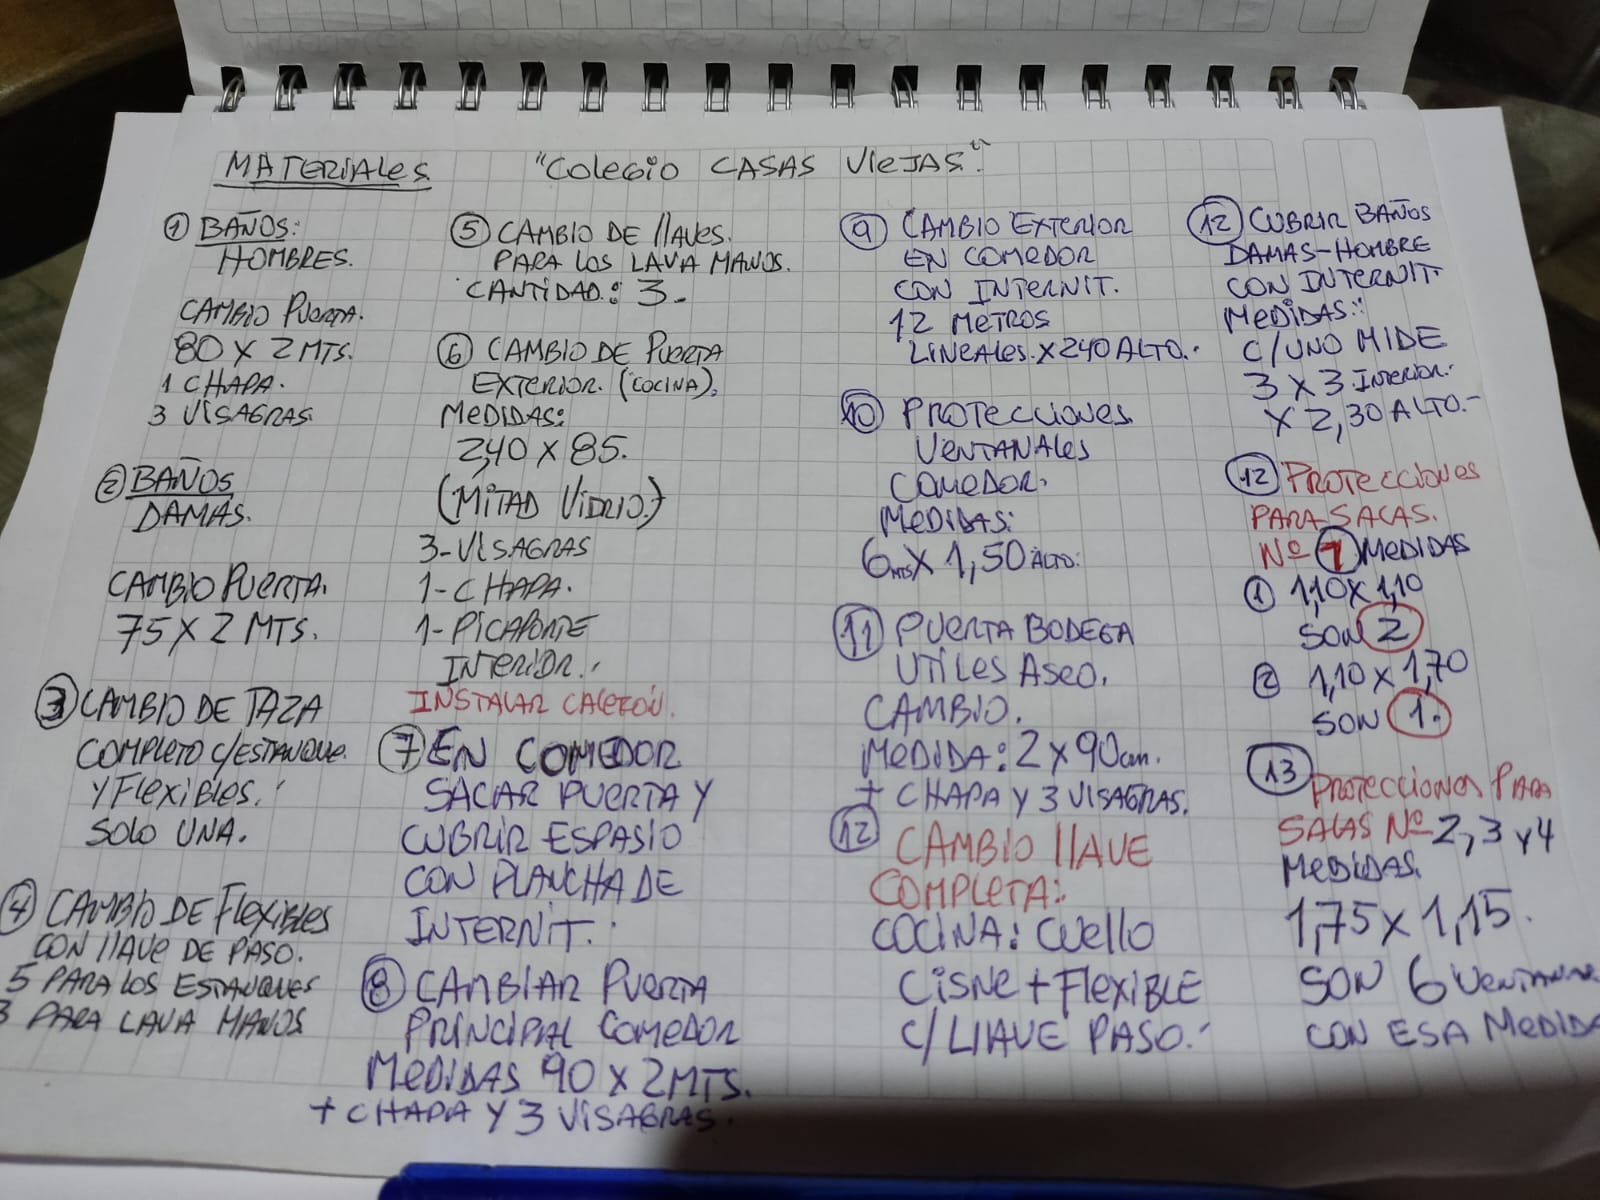 MATERIALES "COLEGIO CASAS VIEJAS"
① BAÑOS:
HOMBRES.
CAMBIO PUERTA.
80 X 2 MTS.
1 CHAPA.
3 VISAGRAS
② BAÑOS
DAMAS.
CAMBIO PUERTA.
75 X 2 MTS.
③ CAMBIO DE TAZA
COMPLETO C/ESTANQUE
Y FLEXIBLES.
SOLO UNA.
④ CAMBIO DE FLEXIBLES
CON LLAVE DE PASO.
5 PARA LOS ESTANQUES
3 PARA LAVA MANOS
⑤ CAMBIO DE LLAVES.
PARA LOS LAVA MANOS.
CANTIDAD: 3.-
⑥ CAMBIO DE PUERTA
EXTERIOR. (COCINA).
MEDIDAS:
2,40 X 85.
(MITAD VIDRIO.)
3-VISAGRAS
1-CHAPA.
1-PICAPORTE
INTERIOR.
INSTALAR CALEFÓN.
⑦ EN COMEDOR
SACAR PUERTA Y
CUBRIR ESPASIO
CON PLANCHA DE
INTERNIT.
⑧ CAMBIAR PUERTA
PRINCIPAL COMEDOR
MEDIDAS 90 X 2 MTS.
+ CHAPA Y 3 VISAGRAS.
⑨ CAMBIO EXTERIOR
EN COMEDOR
CON INTERNIT.
12 METROS
LINEALES. X 240 ALTO.-
⑩ PROTECCIONES
VENTANALES
COMEDOR.
MEDIDAS:
6 MTS X 1,50 ALTO.
⑪ PUERTA BODEGA
UTILES ASEO.
CAMBIO.
MEDIDA: 2 X 90 cm.
+ CHAPA Y 3 VISAGRAS.
⑫ CAMBIO LLAVE
COMPLETA:
COCINA: CUELLO
CISNE + FLEXIBLE
C/LLAVE PASO.-
⑫ CUBRIR BAÑOS
DAMAS-HOMBRE
CON INTERNIT
MEDIDAS:
C/UNO MIDE
3 X 3 INTERIOR.
X 2,30 ALTO.-
⑫ PROTECCIONES
PARA SALAS.
Nº 1 MEDIDAS
① 1,10 X 1,10
SON 2
② 1,10 X 1,70
SON 1.
⑬ PROTECCIONES PARA
SALAS Nº 2, 3 Y 4
MEDIDAS.
1,75 X 1,15.
SON 6 VENTANAS
CON ESA MEDIDA